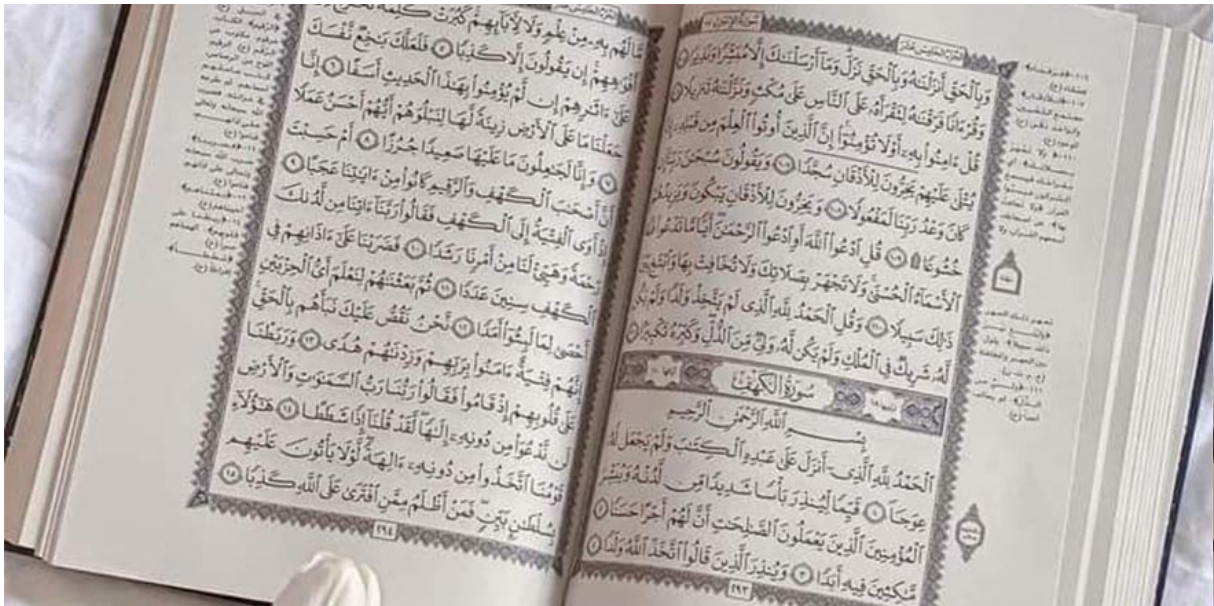 سُورَةُ الإِسْرَاءِ ١٧ الجُزْءُ الخَامِسَ عَشَرَ
وَبِٱلْحَقِّ أَنزَلْنَٰهُ وَبِٱلْحَقِّ نَزَلَ وَمَآ أَرْسَلْنَٰكَ إِلَّا مُبَشِّرًا وَنَذِيرًا
وَقُرْءَانًا فَرَقْنَٰهُ لِتَقْرَأَهُۥ عَلَى ٱلنَّاسِ عَلَىٰ مُكْثٍ وَنَزَّلْنَٰهُ تَنزِيلًا
قُلْ ءَامِنُوا۟ بِهِۦٓ أَوْ لَا تُؤْمِنُوٓا۟ إِنَّ ٱلَّذِينَ أُوتُوا۟ ٱلْعِلْمَ مِن قَبْلِهِۦٓ
يُتْلَىٰ عَلَيْهِمْ يَخِرُّونَ لِلْأَذْقَانِ سُجَّدًا ١٠٧ وَيَقُولُونَ سُبْحَٰنَ رَبِّنَآ إِن
كَانَ وَعْدُ رَبِّنَا لَمَفْعُولًا ١٠٨ وَيَخِرُّونَ لِلْأَذْقَانِ يَبْكُونَ وَيَزِيدُهُمْ
خُشُوعًا ۩ ١٠٩ قُلِ ٱدْعُوا۟ ٱللَّهَ أَوِ ٱدْعُوا۟ ٱلرَّحْمَٰنَ أَيًّا مَّا تَدْعُوا۟ فَلَهُ
ٱلْأَسْمَآءُ ٱلْحُسْنَىٰ وَلَا تَجْهَرْ بِصَلَاتِكَ وَلَا تُخَافِتْ بِهَا وَٱبْتَغِ بَيْنَ
ذَٰلِكَ سَبِيلًا ١١٠ وَقُلِ ٱلْحَمْدُ لِلَّهِ ٱلَّذِى لَمْ يَتَّخِذْ وَلَدًا وَلَمْ يَكُن
لَّهُۥ شَرِيكٌ فِى ٱلْمُلْكِ وَلَمْ يَكُن لَّهُۥ وَلِىٌّ مِّنَ ٱلذُّلِّ وَكَبِّرْهُ تَكْبِيرًۢا
سُورَةُ الكَهْفِ
بِسْمِ ٱللَّهِ ٱلرَّحْمَٰنِ ٱلرَّحِيمِ
ٱلْحَمْدُ لِلَّهِ ٱلَّذِىٓ أَنزَلَ عَلَىٰ عَبْدِهِ ٱلْكِتَٰبَ وَلَمْ يَجْعَل لَّهُۥ
عِوَجَا ١ قَيِّمًا لِّيُنذِرَ بَأْسًا شَدِيدًا مِّن لَّدُنْهُ وَيُبَشِّرَ
ٱلْمُؤْمِنِينَ ٱلَّذِينَ يَعْمَلُونَ ٱلصَّٰلِحَٰتِ أَنَّ لَهُمْ أَجْرًا حَسَنًا ٢
مَّٰكِثِينَ فِيهِ أَبَدًا ٣ وَيُنذِرَ ٱلَّذِينَ قَالُوا۟ ٱتَّخَذَ ٱللَّهُ وَلَدًا ٤
٢٩٣
مَّا لَهُم بِهِۦ مِنْ عِلْمٍ وَلَا لِءَابَآئِهِمْ كَبُرَتْ كَلِمَةً تَخْرُجُ مِنْ
أَفْوَٰهِهِمْ إِن يَقُولُونَ إِلَّا كَذِبًا ٥ فَلَعَلَّكَ بَٰخِعٌ نَّفْسَكَ
عَلَىٰٓ ءَاثَٰرِهِمْ إِن لَّمْ يُؤْمِنُوا۟ بِهَٰذَا ٱلْحَدِيثِ أَسَفًا ٦ إِنَّا
جَعَلْنَا مَا عَلَى ٱلْأَرْضِ زِينَةً لَّهَا لِنَبْلُوَهُمْ أَيُّهُمْ أَحْسَنُ عَمَلًا
٧ وَإِنَّا لَجَٰعِلُونَ مَا عَلَيْهَا صَعِيدًا جُرُزًا ٨ أَمْ حَسِبْتَ
أَنَّ أَصْحَٰبَ ٱلْكَهْفِ وَٱلرَّقِيمِ كَانُوا۟ مِنْ ءَايَٰتِنَا عَجَبًا ٩
إِذْ أَوَى ٱلْفِتْيَةُ إِلَى ٱلْكَهْفِ فَقَالُوا۟ رَبَّنَآ ءَاتِنَا مِن لَّدُنكَ
رَحْمَةً وَهَيِّئْ لَنَا مِنْ أَمْرِنَا رَشَدًا ١٠ فَضَرَبْنَا عَلَىٰٓ ءَاذَانِهِمْ فِى
ٱلْكَهْفِ سِنِينَ عَدَدًا ١١ ثُمَّ بَعَثْنَٰهُمْ لِنَعْلَمَ أَىُّ ٱلْحِزْبَيْنِ
أَحْصَىٰ لِمَا لَبِثُوٓا۟ أَمَدًا ١٢ نَّحْنُ نَقُصُّ عَلَيْكَ نَبَأَهُم بِٱلْحَقِّ
إِنَّهُمْ فِتْيَةٌ ءَامَنُوا۟ بِرَبِّهِمْ وَزِدْنَٰهُمْ هُدًى ١٣ وَرَبَطْنَا
عَلَىٰ قُلُوبِهِمْ إِذْ قَامُوا۟ فَقَالُوا۟ رَبُّنَا رَبُّ ٱلسَّمَٰوَٰتِ وَٱلْأَرْضِ
لَن نَّدْعُوَا۟ مِن دُونِهِۦٓ إِلَٰهًا لَّقَدْ قُلْنَآ إِذًا شَطَطًا ١٤ هَٰٓؤُلَآءِ
قَوْمُنَا ٱتَّخَذُوا۟ مِن دُونِهِۦٓ ءَالِهَةً لَّوْلَا يَأْتُونَ عَلَيْهِم
بِسُلْطَٰنٍۭ بَيِّنٍ فَمَنْ أَظْلَمُ مِمَّنِ ٱفْتَرَىٰ عَلَى ٱللَّهِ كَذِبًا ١٥
٢٩٤